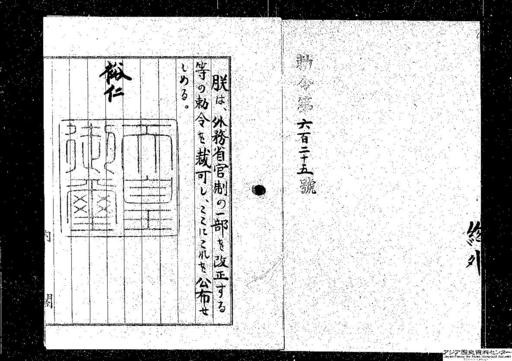 勅令第六百二十五號
総外
朕は、外務省官制の一部を改正する
等の勅令を裁可し、ここにこれを公布せ
しめる。
裕仁
天皇
御璽
内閣
アジア歴史資料センター